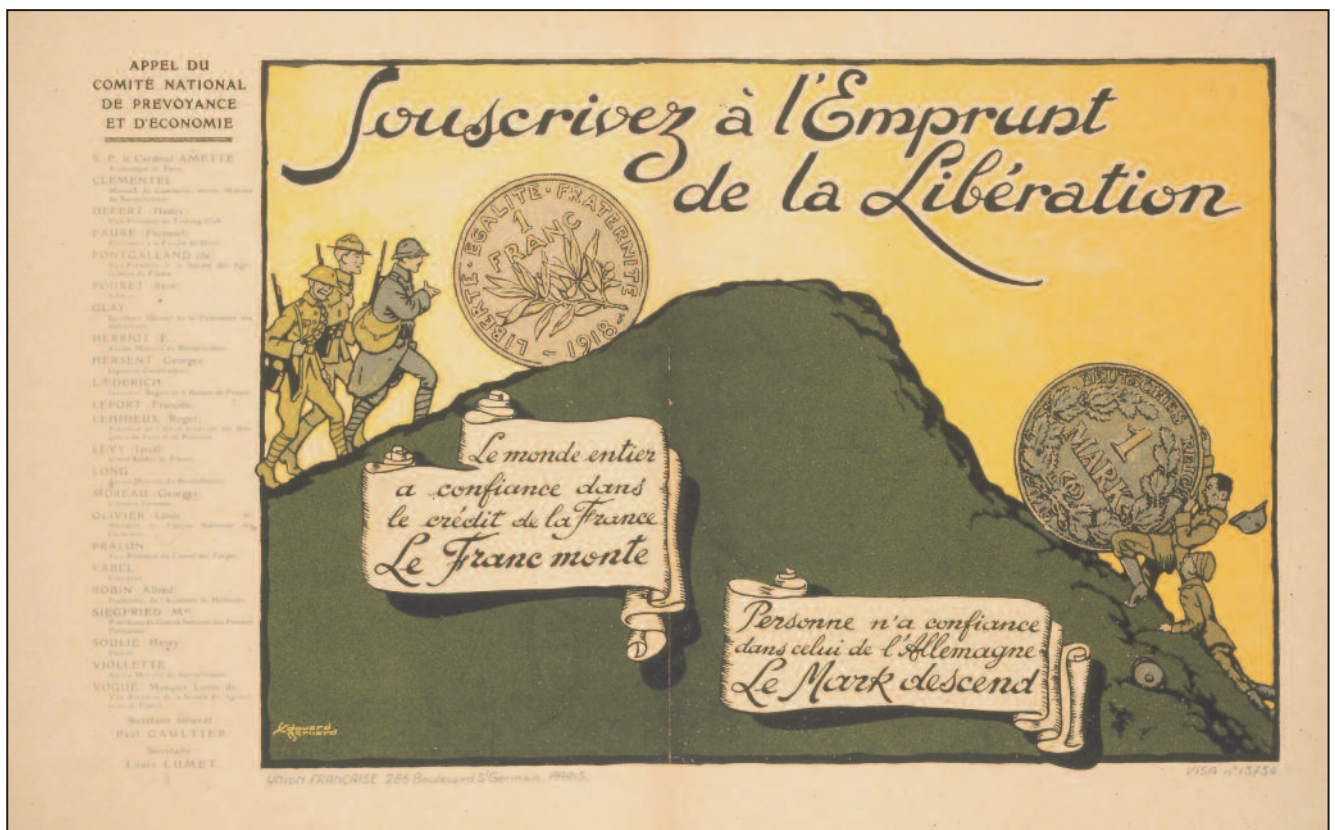 APPEL DU
COMITÉ NATIONAL
DE PREVOYANCE
ET D'ECONOMIE
S. E. le Cardinal AMETTE
CLEMENTEL
DEFERT (Henry)
FAURE (Fernand)
FONTGALLAND (de)
FOURET (René)
GLAY
HERRIOT (E.
HERSENT (Georges)
LÆDERICH
LEFORT (François)
LEHIDEUX (Roger)
LEVY (Israël)
LONG
MOREAU (Georges)
OLIVIER (Louis)
PRALON
RABEL
ROBIN (Alfred)
SIEGFRIED Mme
SOULIE (Henry)
VIOLLETTE
VOGUÉ (Marquis Louis de
Secrétaire Général
Paul GAULTIER
Secrétaire
Louis LUMET.
Souscrivez à l'Emprunt
de la Libération
LIBERTE · EGALITE · FRATERNITE
1
FRANC
1918
DEUTSCHES REICH
1
MARK
Le monde entier
a confiance dans
le crédit de la France
Le Franc monte
Personne n'a confiance
dans celui de l'Allemagne
Le Mark descend
Edouard
Bernard
UNION FRANÇAISE 286 Boulevard St Germain. PARIS.
VISA n° 13754